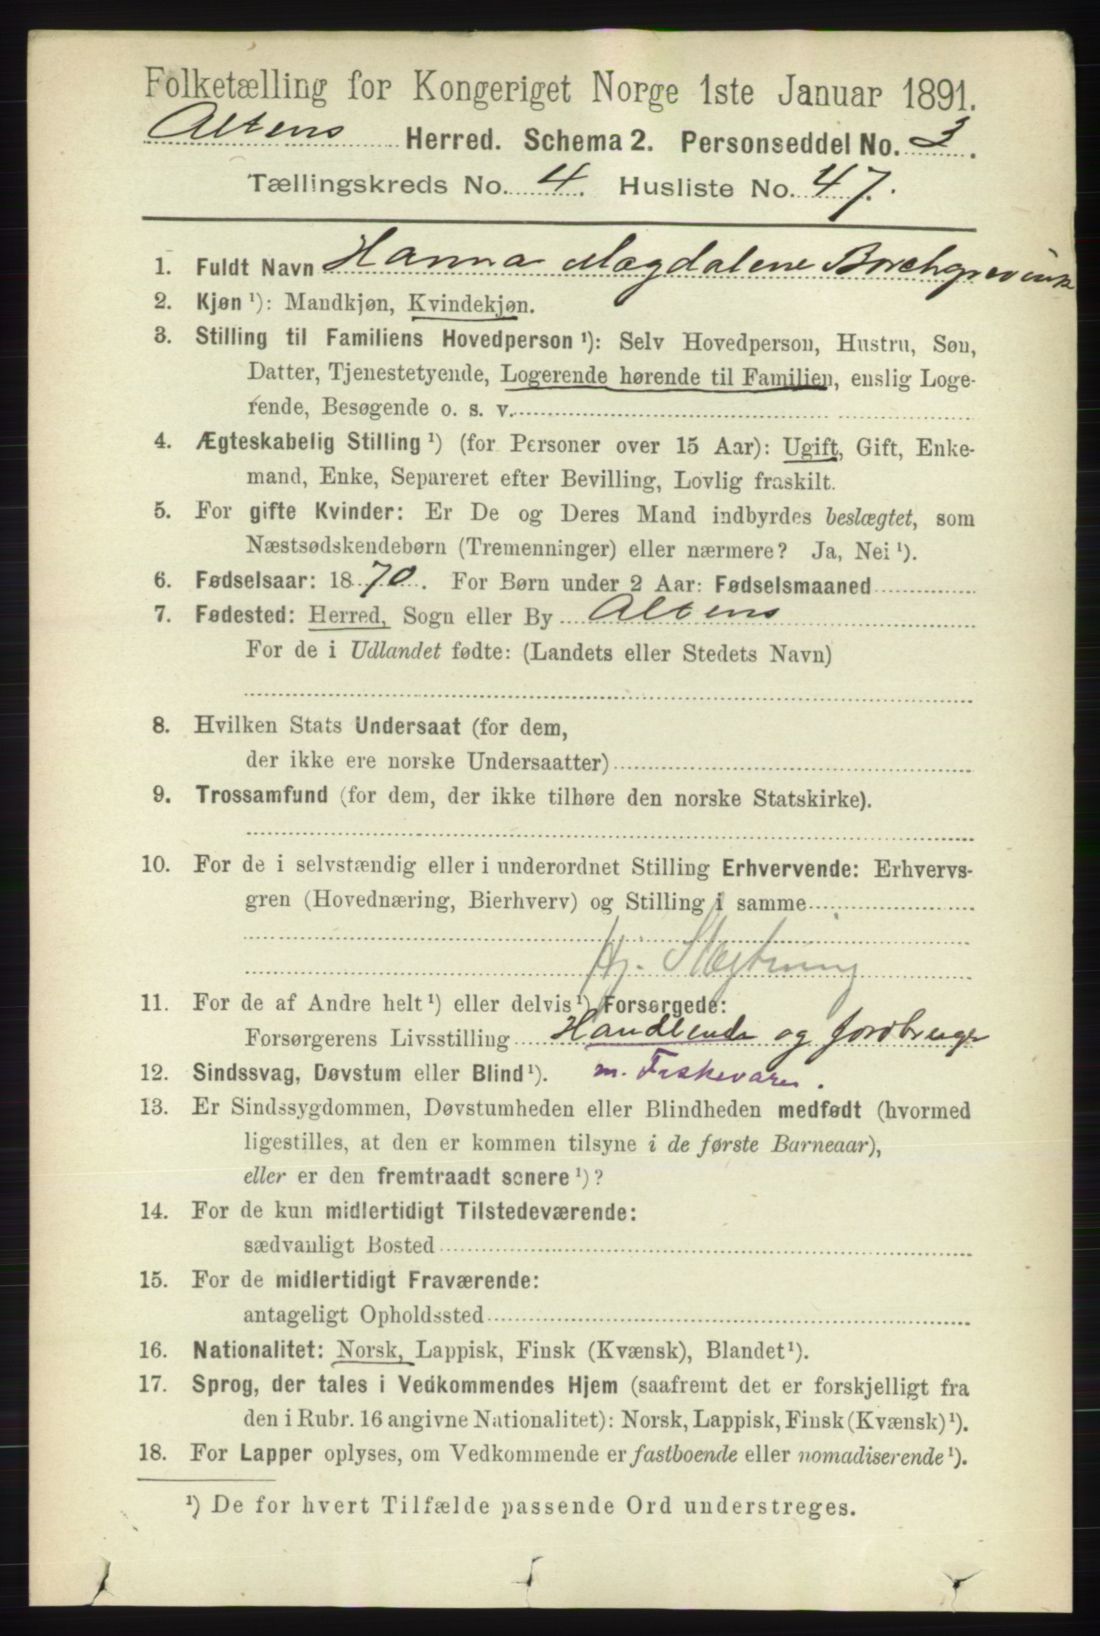 Folketælling for Kongeriget Norge 1ste Januar 1891.
Altens Herred. Schema 2. Personseddel No. 3.
Tællingskreds No. 4. Husliste No. 47.
1. Fuldt Navn Hanna Magdalene Borchgrevink
2. Kjøn ¹): Mandkjøn, Kvindekjøn.
3. Stilling til Familiens Hovedperson ¹): Selv Hovedperson, Hustru, Søn,
Datter, Tjenestetyende, Logerende hørende til Familien, enslig Loge-
rende, Besøgende o. s. v.
4. Ægteskabelig Stilling ¹) (for Personer over 15 Aar): Ugift, Gift, Enke-
mand, Enke, Separeret efter Bevilling, Lovlig fraskilt.
5. For gifte Kvinder: Er De og Deres Mand indbyrdes beslægtet, som
Næstsødskendebørn (Tremenninger) eller nærmere? Ja, Nei ¹).
6. Fødselsaar: 1870. For Børn under 2 Aar: Fødselsmaaned
7. Fødested: Herred, Sogn eller By Altens
For de i Udlandet fødte: (Landets eller Stedets Navn)
8. Hvilken Stats Undersaat (for dem,
der ikke ere norske Undersaatter)
9. Trossamfund (for dem, der ikke tilhøre den norske Statskirke).
10. For de i selvstændig eller i underordnet Stilling Erhvervende: Erhvervs-
gren (Hovednæring, Bierhverv) og Stilling i samme
Hj. Slægtning
11. For de af Andre helt ¹) eller delvis ¹) Forsørgede:
Forsørgerens Livsstilling Handlende og Jordbruger
12. Sindssvag, Døvstum eller Blind ¹). m. Fiskevarer.
13. Er Sindssygdommen, Døvstumheden eller Blindheden medfødt (hvormed
ligestilles, at den er kommen tilsyne i de første Barneaar),
eller er den fremtraadt senere ¹)?
14. For de kun midlertidigt Tilstedeværende:
sædvanligt Bosted
15. For de midlertidigt Fraværende:
antageligt Opholdssted
16. Nationalitet: Norsk, Lappisk, Finsk (Kvænsk), Blandet ¹).
17. Sprog, der tales i Vedkommendes Hjem (saafremt det er forskjelligt fra
den i Rubr. 16 angivne Nationalitet): Norsk, Lappisk, Finsk (Kvænsk) ¹).
18. For Lapper oplyses, om Vedkommende er fastboende eller nomadiserende ¹).
¹) De for hvert Tilfælde passende Ord understreges.